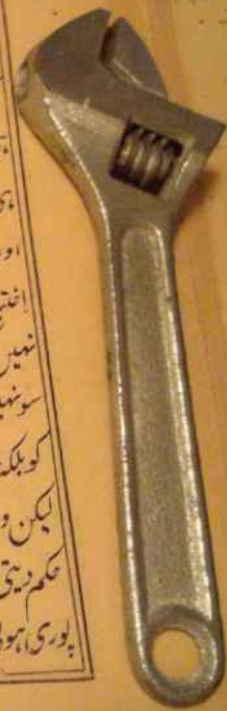 اور
نہیں
سونہیں
کو بلکہ
لیکن و
حکم دیتی
پوری اہو